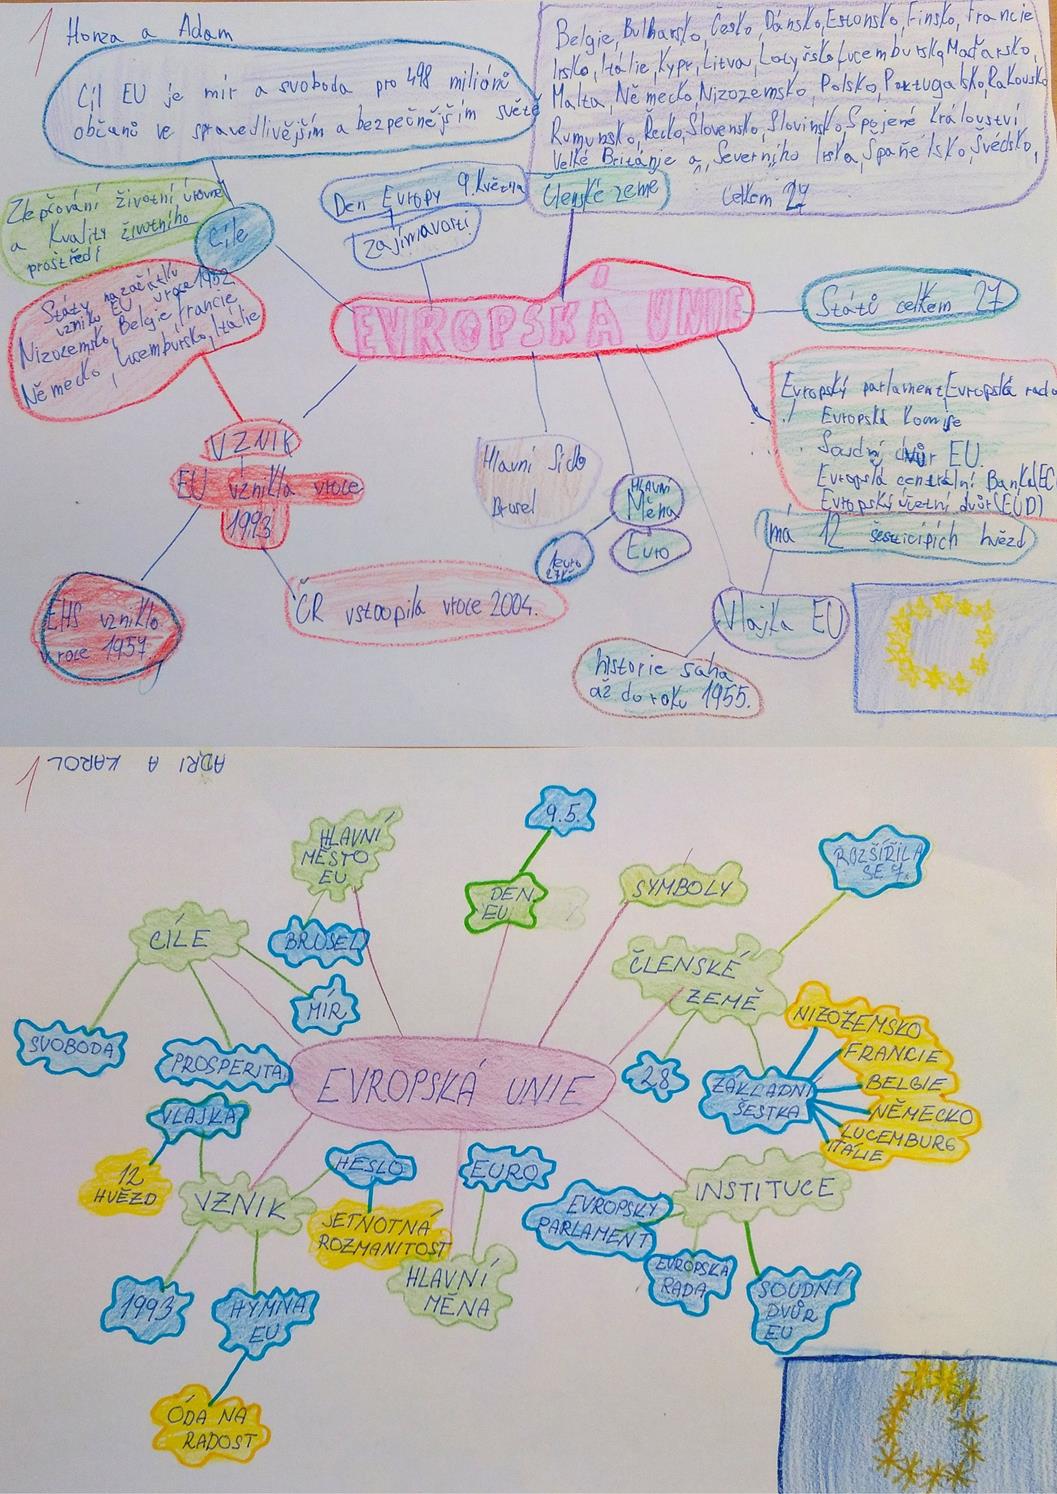 1
Honza a Adam
Cíl EU je mír a svoboda pro 498 miliónů
občanů ve spravedlivějším a bezpečnějším světě
Belgie, Bulharsko, Česko, Dánsko, Estonsko, Finsko, Francie
Irsko, Itálie, Kypr, Litva, Lotyšsko, Lucembursko, Maďarsko,
Malta, Německo, Nizozemsko, Polsko, Portugalsko, Rakousko
Rumunsko, Řecko, Slovensko, Slovinsko, Spojené království
Velké Británie a Severního Irska, Španělsko, Švédsko,
Celkem 27
členské země
Den Evropy 9. května
zajímavosti
Zlepšování životní úrovně
a kvality životního
prostředí
Cíle
Státy na začátku
vzniku EU v roce 1952
Nizozemsko, Belgie, Francie,
Německo, Lucembursko, Itálie
EVROPSKÁ UNIE
Států celkem 27
Evropský parlament, Evropská rada
Evropská komise
Soudní dvůr EU
Evropská centrální Banka (EC
Evropský účetní dvůr (EÚD)
VZNIK
EU vznikla vroce
1993
Hlavní Sídlo
Brusel
HLAVNÍ
Měna
Euro
1euro
27Kč
má 12 šesticípích hvězd
EHS vzniklo
v roce 1957
ČR vstoupila vroce 2004.
Vlajka EU
historie sahá
až do roku 1955.
1
ADRI A KAROL
9.5.
HLAVNÍ
MĚSTO
EU
DEN
EU
SYMBOLY
ROZŠÍŘILA
SE 7x
CÍLE
BRUSEL
ČLENSKÉ
ZEMĚ
MÍR
SVOBODA
PROSPERITA
NIZOZEMSKO
FRANCIE
BELGIE
NĚMECKO
LUCEMBURG
ITÁLIE
EVROPSKÁ UNIE
28
ZÁKLADNÍ
ŠESTKA
VLAJKA
12
HVĚZD
VZNIK
HESLO
EURO
INSTITUCE
JETNOTNÁ
ROZMANITOST
EVROPSKÝ
PARLAMENT
HLAVNÍ
MĚNA
EVROPSKÁ
RADA
SOUDNÍ
DVŮR
EU
1993
HYMNA
EU
ÓDA NA
RADOST